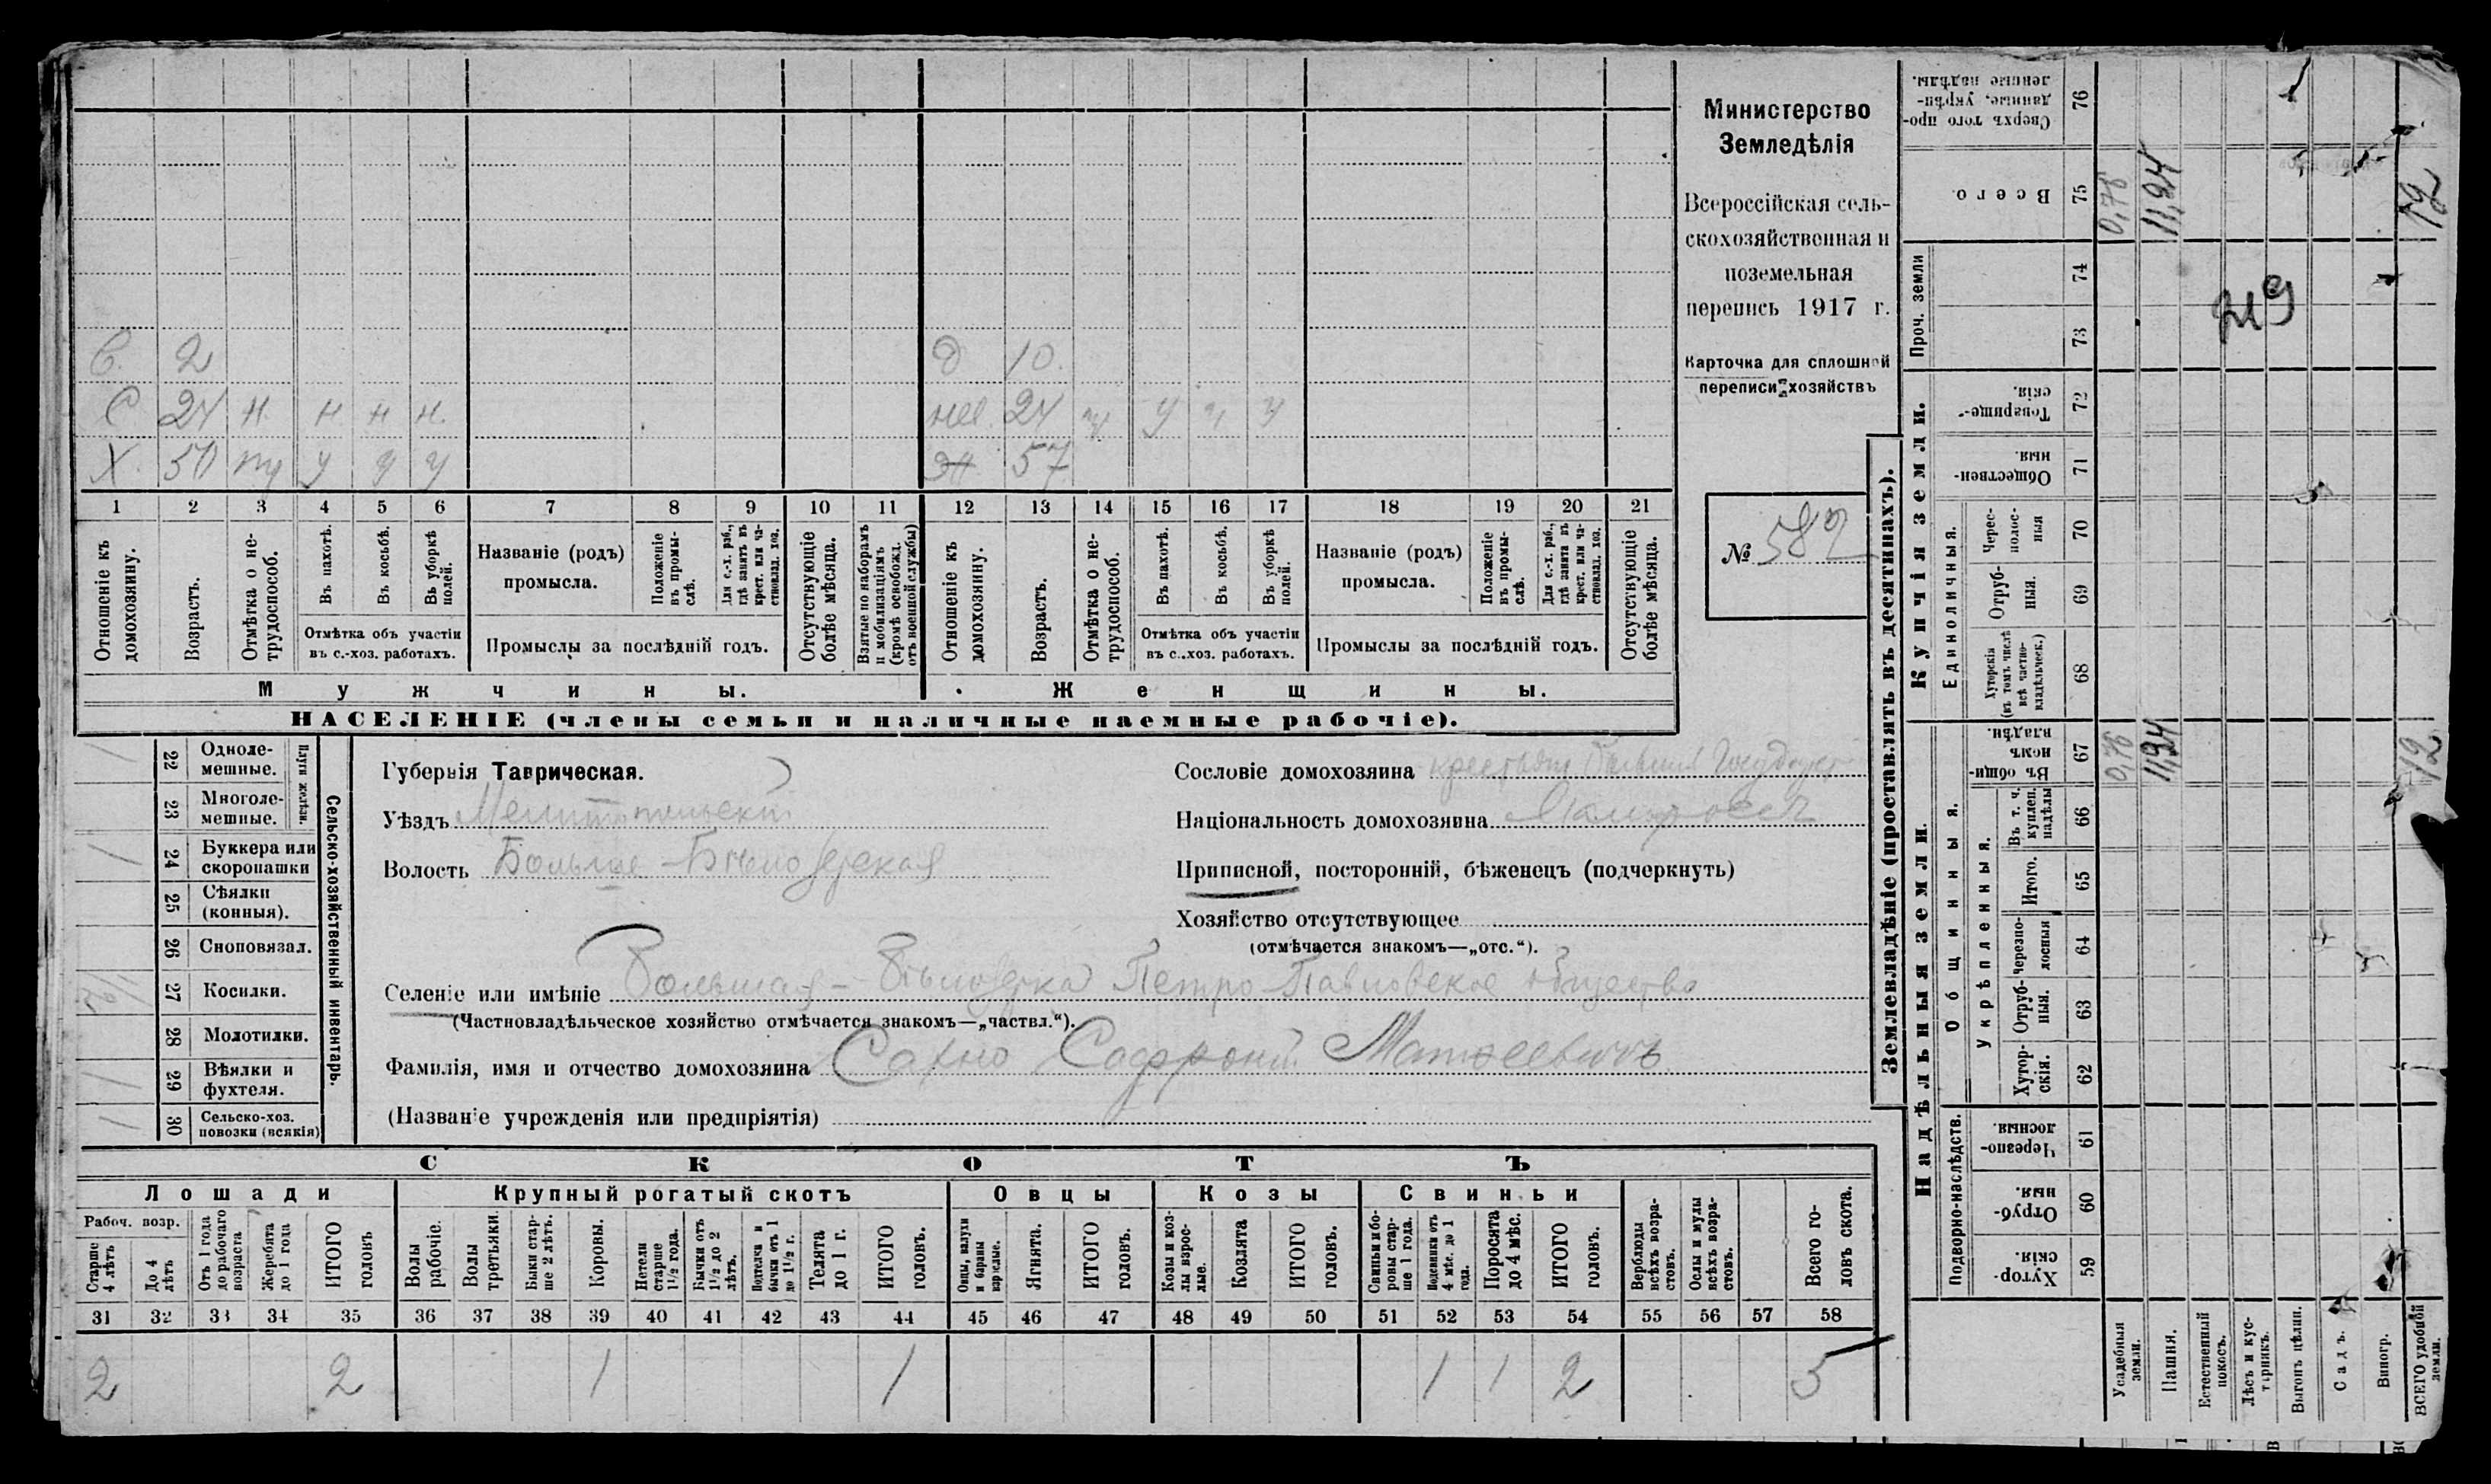 Министерство
Земледѣлія
Всероссійская сель-
скохозяйственная и
поземельная
перепись 1917 г.
Карточка для сплошной
переписи хозяйствъ
№ 582
С. 2 д 10.
С 24 н. н н н. нев. 24 у ч у
Х. 50 тр у у у жн 57
1 2 3 4 5 6 7 8 9 10 11 12 13 14 15 16 17 18 19 20 21
Отношеніе къ домохозяину.
Возрастъ.
Отмѣтка о не-трудоспособ.
Въ пахотѣ.
Въ косьбѣ.
Въ уборкѣ полей.
Отмѣтка объ участіи
въ с.-хоз. работахъ.
Названіе (родъ)
промысла.
Положеніе въ промы-слѣ.
Для с.-х. раб., гдѣ занятъ въ крест. или ча-стновлад. хоз.
Промыслы за послѣдній годъ.
Отсутствующіе болѣе мѣсяца.
Взятые по наборамъ и мобилизаціямъ (кромѣ освобожд. отъ военной службы)
Отношеніе къ домохозяину.
Возрастъ.
Отмѣтка о не-трудоспособ.
Въ пахотѣ.
Въ косьбѣ.
Въ уборкѣ полей.
Отмѣтка объ участіи
въ с.-хоз. работахъ.
Названіе (родъ)
промысла.
Положеніе въ промы-слѣ.
Для с.-х. раб., гдѣ занята въ крест. или ча-стновлад. хоз.
Промыслы за послѣдній годъ.
Отсутствующіе болѣе мѣсяца.
Мужчины. Женщины.
НАСЕЛЕНІЕ (члены семьи и наличные наемные рабочіе).
Сельско-хозяйственный инвентарь.
Плуги желѣзн.
1 22 Одноле-мешные.
23 Многоле-мешные.
1 24 Буккера или скоропашки
25 Сѣялки (конныя).
26 Сноповязал.
27 Косилки.
28 Молотилки.
1 29 Вѣялки и фухтеля.
1 30 Сельско-хоз. повозки (всякія)
Губернія Таврическая.
Уѣздъ Мелитопольскій
Волость Больше-Бѣлозерская
Сословіе домохозяина крестьян. бывшія Государст.
Національность домохозяина Малороссъ
Приписной, посторонній, бѣженецъ (подчеркнуть)
Хозяйство отсутствующее
(отмѣчается знакомъ—„отс.“).
Селеніе или имѣніе Большая-Бѣлозерка Петро-Павловское общество
(Частновладѣльческое хозяйство отмѣчается знакомъ—„частвл.“).
Фамилія, имя и отчество домохозяина Сахно Софроній Матвеевичъ
(Названіе учрежденія или предпріятія)
СКОТЪ
Лошади Крупный рогатый скотъ Овцы Козы Свиньи
Рабоч. возр.
Старше 4 лѣтъ
До 4 лѣтъ
Отъ 1 года до рабочаго возраста
Жеребята до 1 года
ИТОГО головъ
Волы рабочіе.
Волы третьяки.
Быки стар-ше 2 лѣтъ.
Коровы.
Нетели старше 1½ года.
Бычки отъ 1½ до 2 лѣтъ.
Подтелки и бычки отъ 1 до 1½ г.
Телята до 1 г.
ИТОГО головъ.
Овцы, валухи и бараны взрослые.
Ягнята.
ИТОГО головъ.
Козы и коз-лы взрос-лые.
Козлята
ИТОГО головъ.
Свиньи и бо-ровы стар-ше 1 года.
Подсвинки отъ 4 мѣс. до 1 года.
Поросята до 4 мѣс.
ИТОГО головъ.
Верблюды всѣхъ возра-стовъ.
Ослы и мулы всѣхъ возра-стовъ.
Всего го-ловъ скота.
31 32 33 34 35 36 37 38 39 40 41 42 43 44 45 46 47 48 49 50 51 52 53 54 55 56 57 58
2 2 1 1 1 1 2 5
Землевладѣніе (проставлять въ десятинахъ).
Надѣльныя земли. Купчія земли. Проч. земли
Подворно-наслѣдств. Общинныя. Укрѣпленныя. Единоличныя.
59 Хутор-скія.
60 Отруб-ныя.
61 Черезпо-лосныя.
62 Хутор-скія.
63 Отруб-ныя.
64 Черезпо-лосныя
65 Итого.
66 Въ т. ч. куплен. надѣлы
67 Въ общин-номъ владѣн. 0,76 11,24 12
68 Хуторскія (въ томъ числѣ всѣ частно-владѣльческ.)
69 Отруб-ныя.
70 Черес-полос-ныя
71 Обществен-ныя.
72 Товарище-скія.
73
74
75 Всего. 0,76 11,24 12
76 Сверхъ того про-данные, укрѣп-ленные надѣлы.
219
Усадебныя земли.
Пашня.
Естественный покосъ.
Лѣсъ и кус-тарникъ.
Выгонъ цѣлин.
Садъ.
Виногр.
ВСЕГО удобной земли.